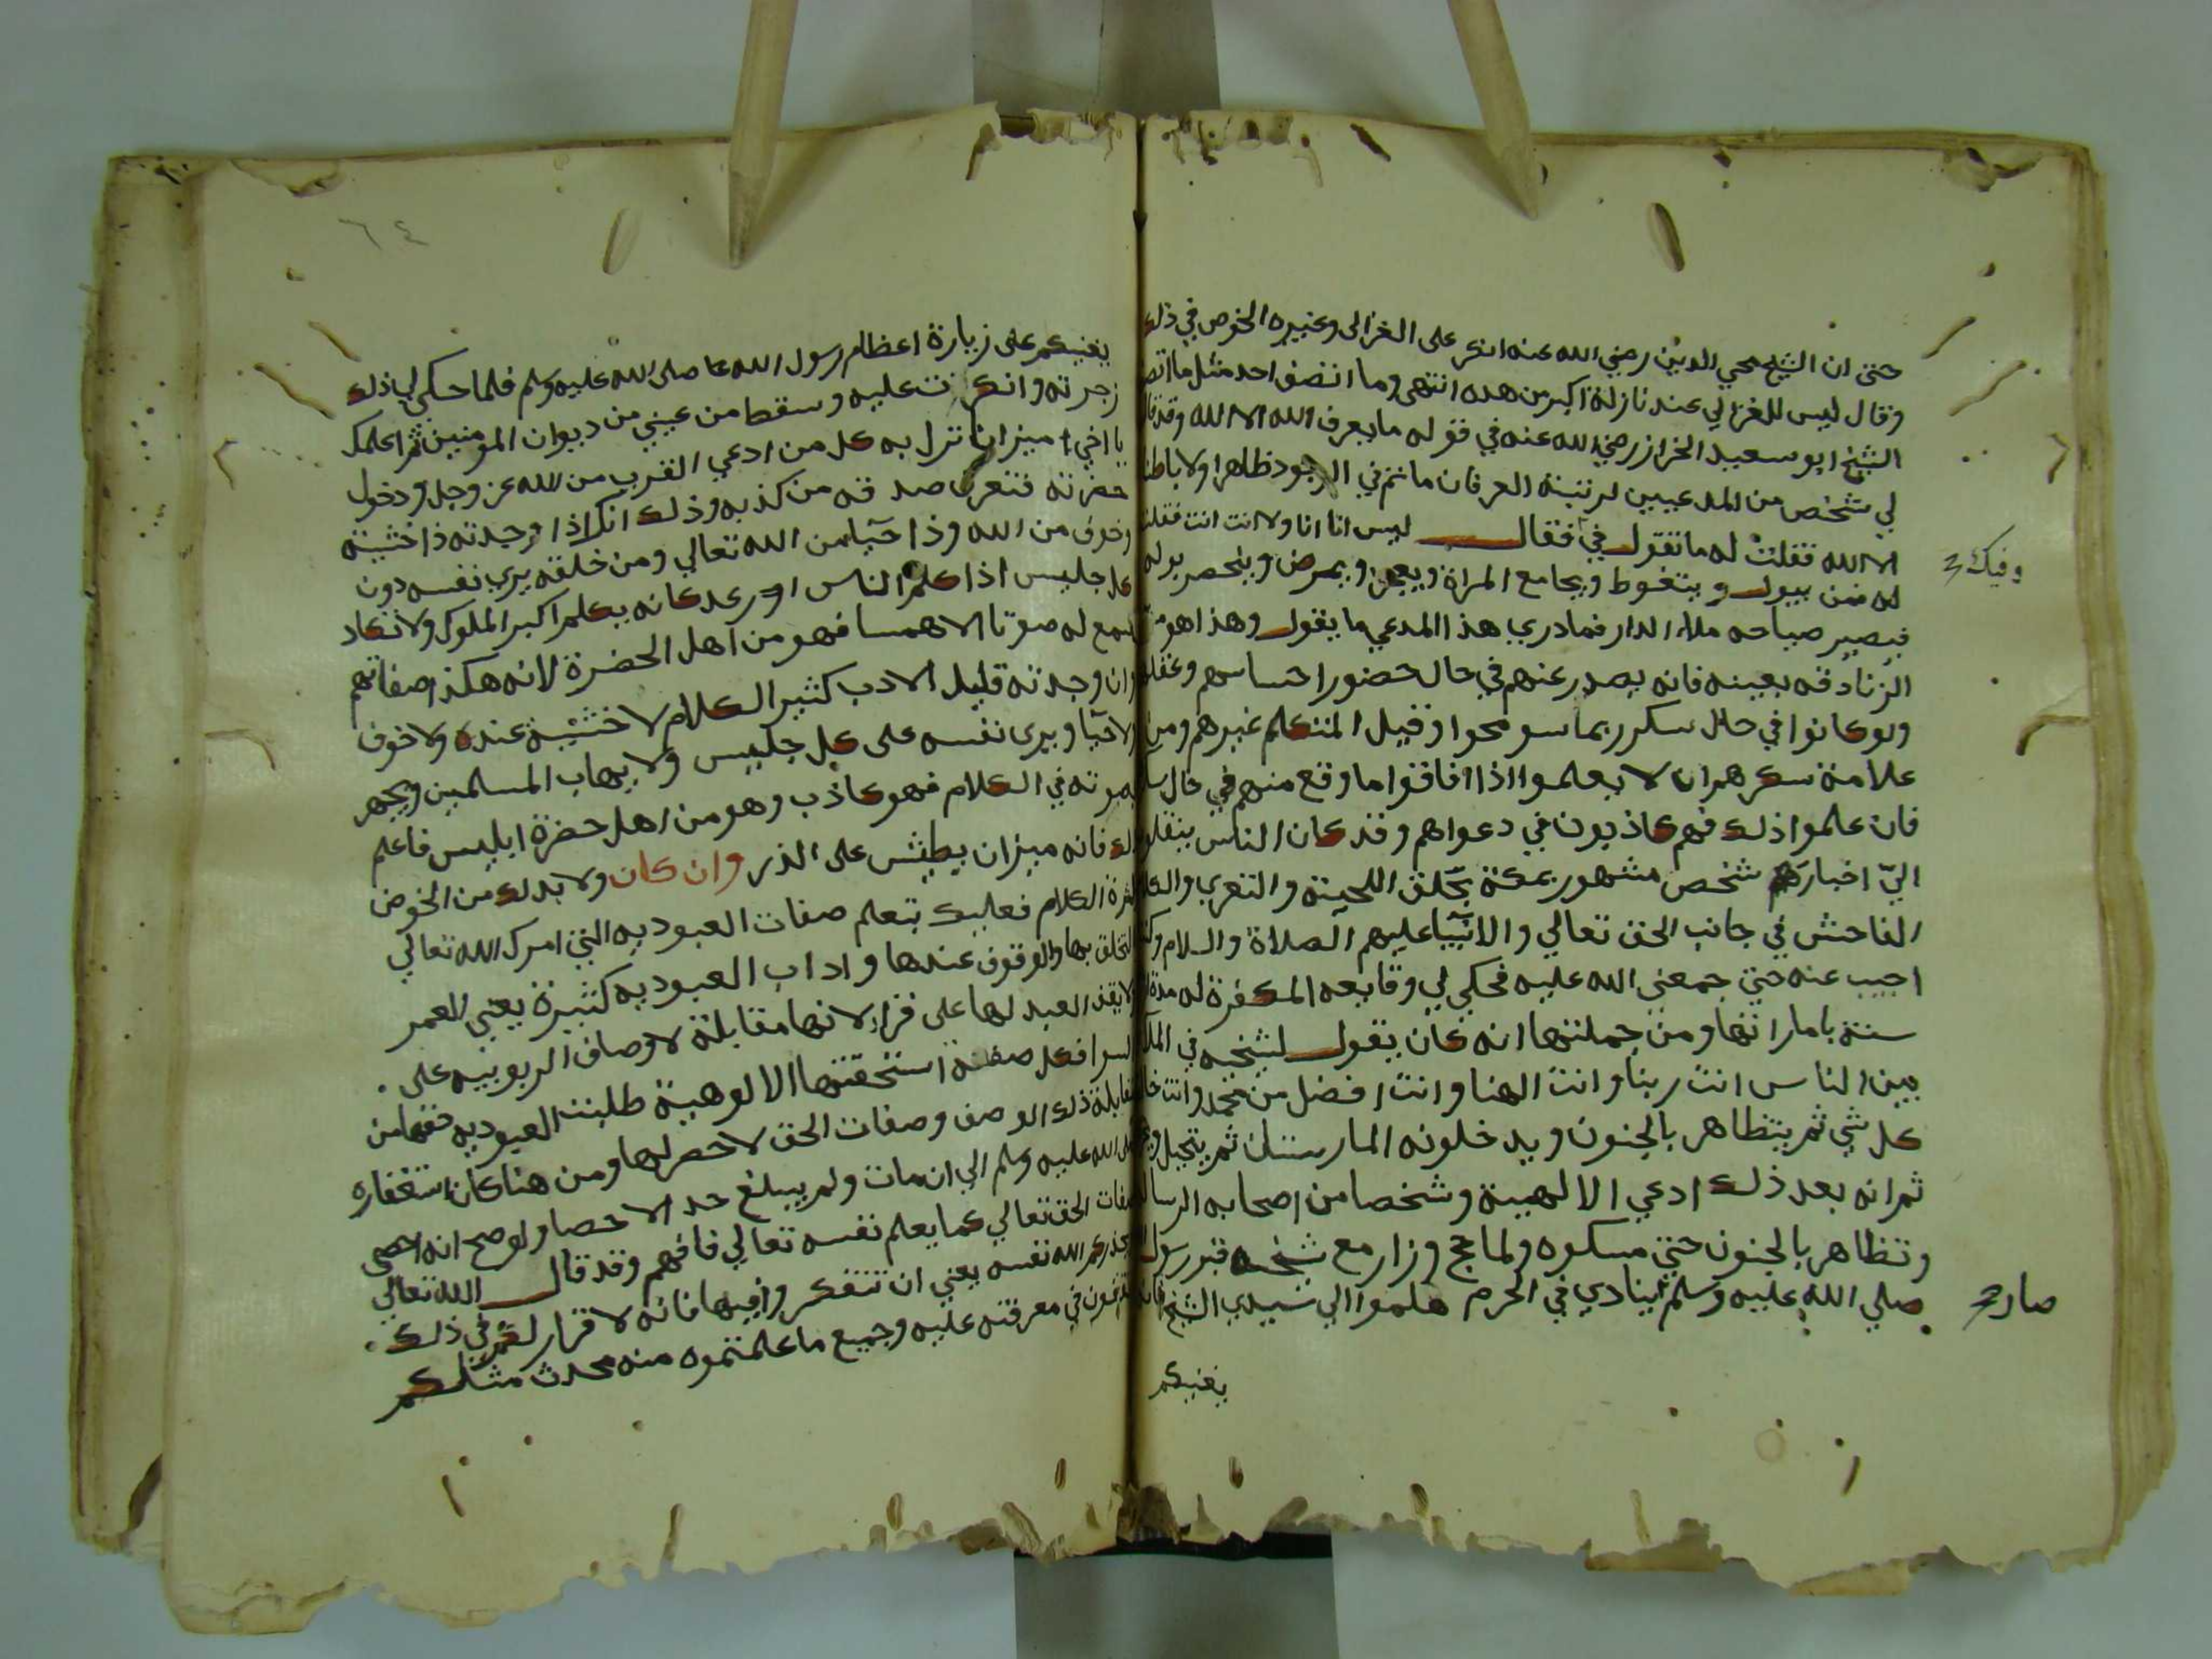 حتى ان الشيخ محي الدين رضي الله عنه انكر على الغزالى وغيره الخوض في ذلك
وقال ليس للغزالي عندنا زلة اكبر من هذه انتهى وما انصف احد مثل ما انصف
الشيخ ابو سعيد الخراز رضي الله عنه في قوله ما يعرف الله الا الله وقد قال
لي شخص من المدعيين لرتبة العرفان ما ثم في الوجود ظاهرا ولا باطنا
الا الله فقلت له ما تقول في فقال ليس انا انا ولا انت انت فقلت
وفيك
له فمن يبول ويتغوط ويجامع المراة ويعجز ويمرض وينحصر بوله
فيصير صياحه ملاء الدار فما دري هذا المدعي ما يقول وهذا هو
الزنادقه بعينه فانه يصدر عنهم في حال حضور احساسهم وعقلهم
ولو كانوا في حال سكر ربما سومحوا وقيل المتكلم غيرهم ومن
علامة سكرهم ان لا يعلموا اذا افاقوا ما وقع منهم في حال
فان علموا ذلك فهم كاذبون في دعواهم وقد كان الناس ينقلون
الىّ اخبار شخص مشهور بمكة بحلق اللحية والتعري والكلام
الفاحش في جانب الحق تعالي والانبيا عليهم الصلاة والسلام وكنت
اجيب عنه حتى جمعني الله عليه فحكي لي وقايعه المكفرة له مدة
سنة باماراتها ومن جملتها انه كان يقول لشيخه في الملا
بين الناس انت ربنا وانت الهنا وانت افضل من محمد وانت خالق
كل شي ثم يتظاهر بالجنون ويدخلونه المارستان ثم يتحيل
ثم انه بعد ذلك ادعي الالهية وشخصا من اصحابه الرسالة
وتظاهر بالجنون حتى مسكوه ولما حج وزار مع شيخه قبر رسول
صار
صلي الله عليه وسلم ينادي في الحرم هلموا الي سيدي الشيخ فانه
يغنيكم
٦٤
يغنيكم على زيارة اعظام رسول الله صلى الله عليه وسلم فلما حكى لي ذلك
زجرته وانكرت عليه وسقط من عيني من ديوان المومنين ثم اعلمك
يا اخي ميزانا تزل به كل من ادعي القرب من الله عز وجل ودخول
حضرته فتعرف صدقه من كذبه وذلك انك اذا وجدته ذا خشية
وخوف من الله وذا حيا من الله تعالي ومن خلقه يرى نفسه دون
كل جليس اذا كلم الناس كانه يكلم اكبر الملوك ولا تكاد
تسمع له صوتا الا همسا فهو من اهل الحضرة لانه هكذا صفاتهم
وان وجدته قليل الادب كثير الكلام لا خشية عنده ولا خوف
ولا حيا ويرى نفسه على كل جليس ولا يهاب المسلمين ويجهر
صوته في الكلام فهو كاذب وهو من اهل حضرة ابليس فاعلم
ذلك فانه ميزان يطيش على الذر وان كان ولا بد لك من الخوض
كثرة الكلام فعليك بتعلم صفات العبوديه التي امرك الله تعالي
بالتخلق بها والوقوف عندها واداب العبوديه كثيرة يعني العمر
ولا يقف العبد لها على قرار لانها مقابلة لاوصاف الربوبيه على
السوا فكل صفة استحقتها الالوهية طلبت العبوديه حقها من
مقابلة ذلك الوصف وصفات الحق لا حصر لها ومن هنا كان استغفاره
صلى الله عليه وسلم الي ان مات ولم يبلغ حد الاحصا ولو صح انه احصى
صفات الحق تعالي كما يعلم نفسه تعالي فافهم وقد قال الله تعالي
ويحذركم الله نفسه يعني ان تتفكروا فيها فانه لا قرار لكم في ذلك
تقفون في معرفته عليه وجميع ما علمتموه منه محدث مثلكم